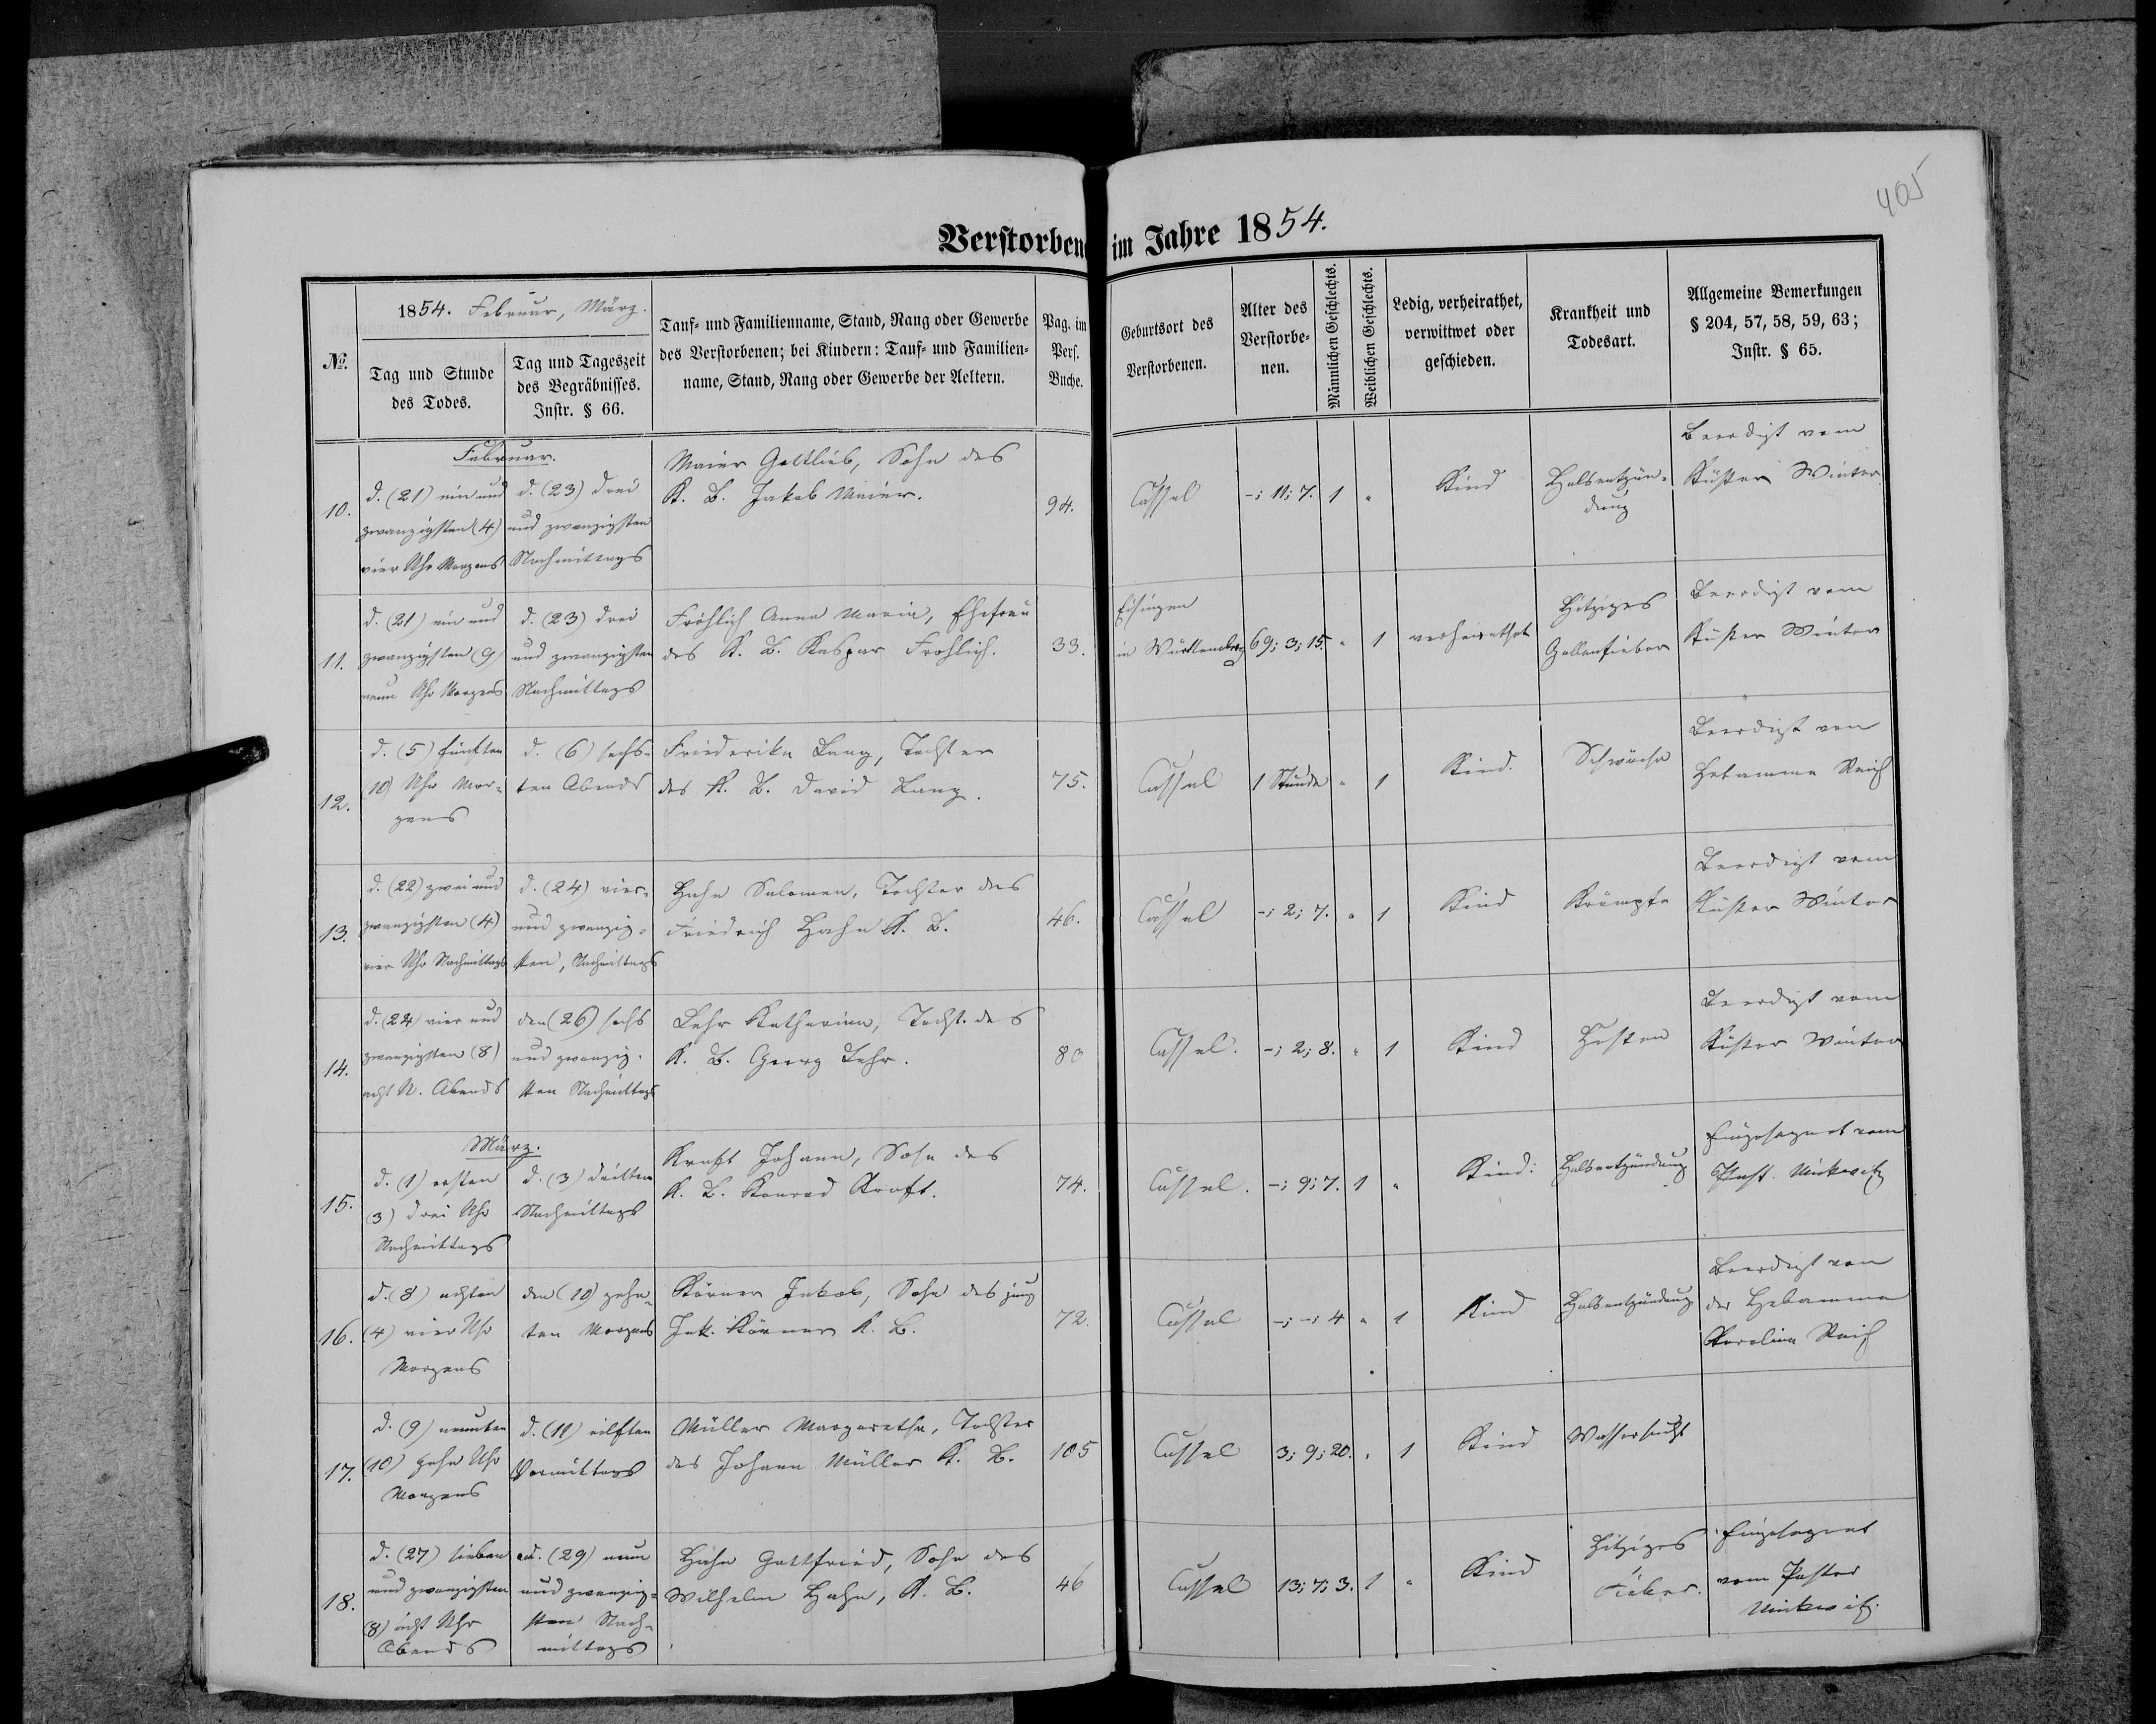 405
Verstorbene im Jahre 1854.
№.
1854. Februar, März.
Tag und Stunde
des Todes.
Tag und Tageszeit
des Begräbnisses.
Instr. § 66.
Tauf- und Familienname, Stand, Rang oder Gewerbe
des Verstorbenen; bei Kindern: Tauf- und Familien-
name, Stand, Rang oder Gewerbe der Aeltern.
Pag. im
Pers.
Buche.
Geburtsort des
Verstorbenen.
Alter des
Verstorbe-
nen.
Männlichen Geschlechts.
Weiblichen Geschlechts.
Ledig, verheirathet,
verwittwet oder
geschieden.
Krankheit und
Todesart.
Allgemeine Bemerkungen
§ 204, 57, 58, 59, 63;
Instr. § 65.
Februar.
10.
d. (21) ein und
zwanzigsten (4)
vier Uhr Morgens
d. (23) drei
und zwanzigsten
Nachmittags
Maier Gottlieb, Sohn des
K. B. Jakob Maier.
94.
Cassel
-; 11; 7.
1
"
Kind
Halsentzün-
dung
Beerdigt vom
Küster Winter
11.
d. (21) ein und
zwanzigsten (9)
neun Uhr Morgens
d. (23) drei
und zwanzigsten
Nachmittags
Fröhlich Anna Maria, Ehefrau
des K. B. Kaspar Fröhlich.
33.
Eisingen
in Würtemberg
69; 3; 15.
"
1
verheirathet
Hitziges
Gallenfieber
Beerdigt vom
Küster Winter
12.
d. (5) fünften
(10) Uhr Mor-
gens
d. (6) sechs-
ten Abends
Friederika Lang, Tochter
des K. B. David Lang.
75.
Cassel
1 Stunde
"
1
Kind.
Schwäche
Beerdigt von
Hebamme Reich
13.
d. (22) zwei und
zwanzigsten (4)
vier Uhr Nachmittags
d. (24) vier-
und zwanzig-
sten, Nachmittags
Hahn Salomea, Tochter des
Friedrich Hahn K. B.
46.
Cassel
-; 2; 7.
"
1
Kind
Krämpfe
Beerdigt vom
Küster Winter
14.
d. (24) vier und
zwanzigsten (8)
acht U. Abends
den (26) sechs
und zwanzig-
sten Nachmittags
Lehr Katharina, Tocht. des
K. B. Georg Lehr.
80
Cassel.
-; 2; 8.
"
1
Kind
Husten
Beerdigt vom
Küster Winter
März.
15.
d. (1) ersten
(3) drei Uhr
Nachmittags
d. (3) dritten
Nachmittags
Kraft Johann, Sohn des
K. B. Konrad Kraft.
74.
Cassel.
-; 9; 7.
1
"
Kind.
Halsentzündung
Eingesegnet vom
Past. Minkwitz
16.
d. (8) achten
(4) vier Uhr
Morgens
den (10) zehn-
ten Morgens
Körner Jakob, Sohn des jung
Jak. Körner K. B.
72.
Cassel
-; -; 4
"
1
Kind
Halsentzündung
Beerdigt von
der Hebamme
Karolina Reich
17.
d. (9) neunten
(10) zehn Uhr
Morgens
d. (11) eilften
Vormittags
Müller Margaretha, Tochter
des Johann Müller K. B.
105
Cassel
3; 9; 20.
"
1
Kind
Wassersucht
18.
d. (27) sieben
und zwanzigsten
(8) acht Uhr
Abends
d. (29) neun
und zwanzig-
sten Nach-
mittags
Hahn Gottfried, Sohn des
Wilhelm Hahn, K. B.
46
Cassel
13; 7; 3.
1
"
Kind
Hitziges
Fieber.
Eingesegnet
vom Pastor
Minkwitz.